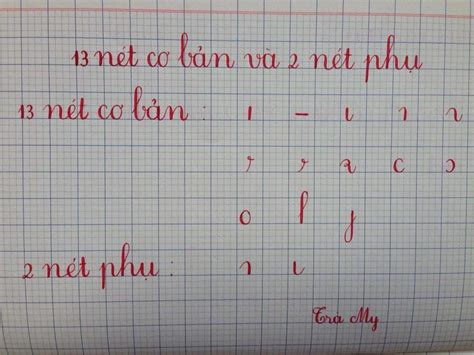 13 nét cơ bản và 2 nét phụ
13 nét cơ bản :
2 nét phụ :
Trà My